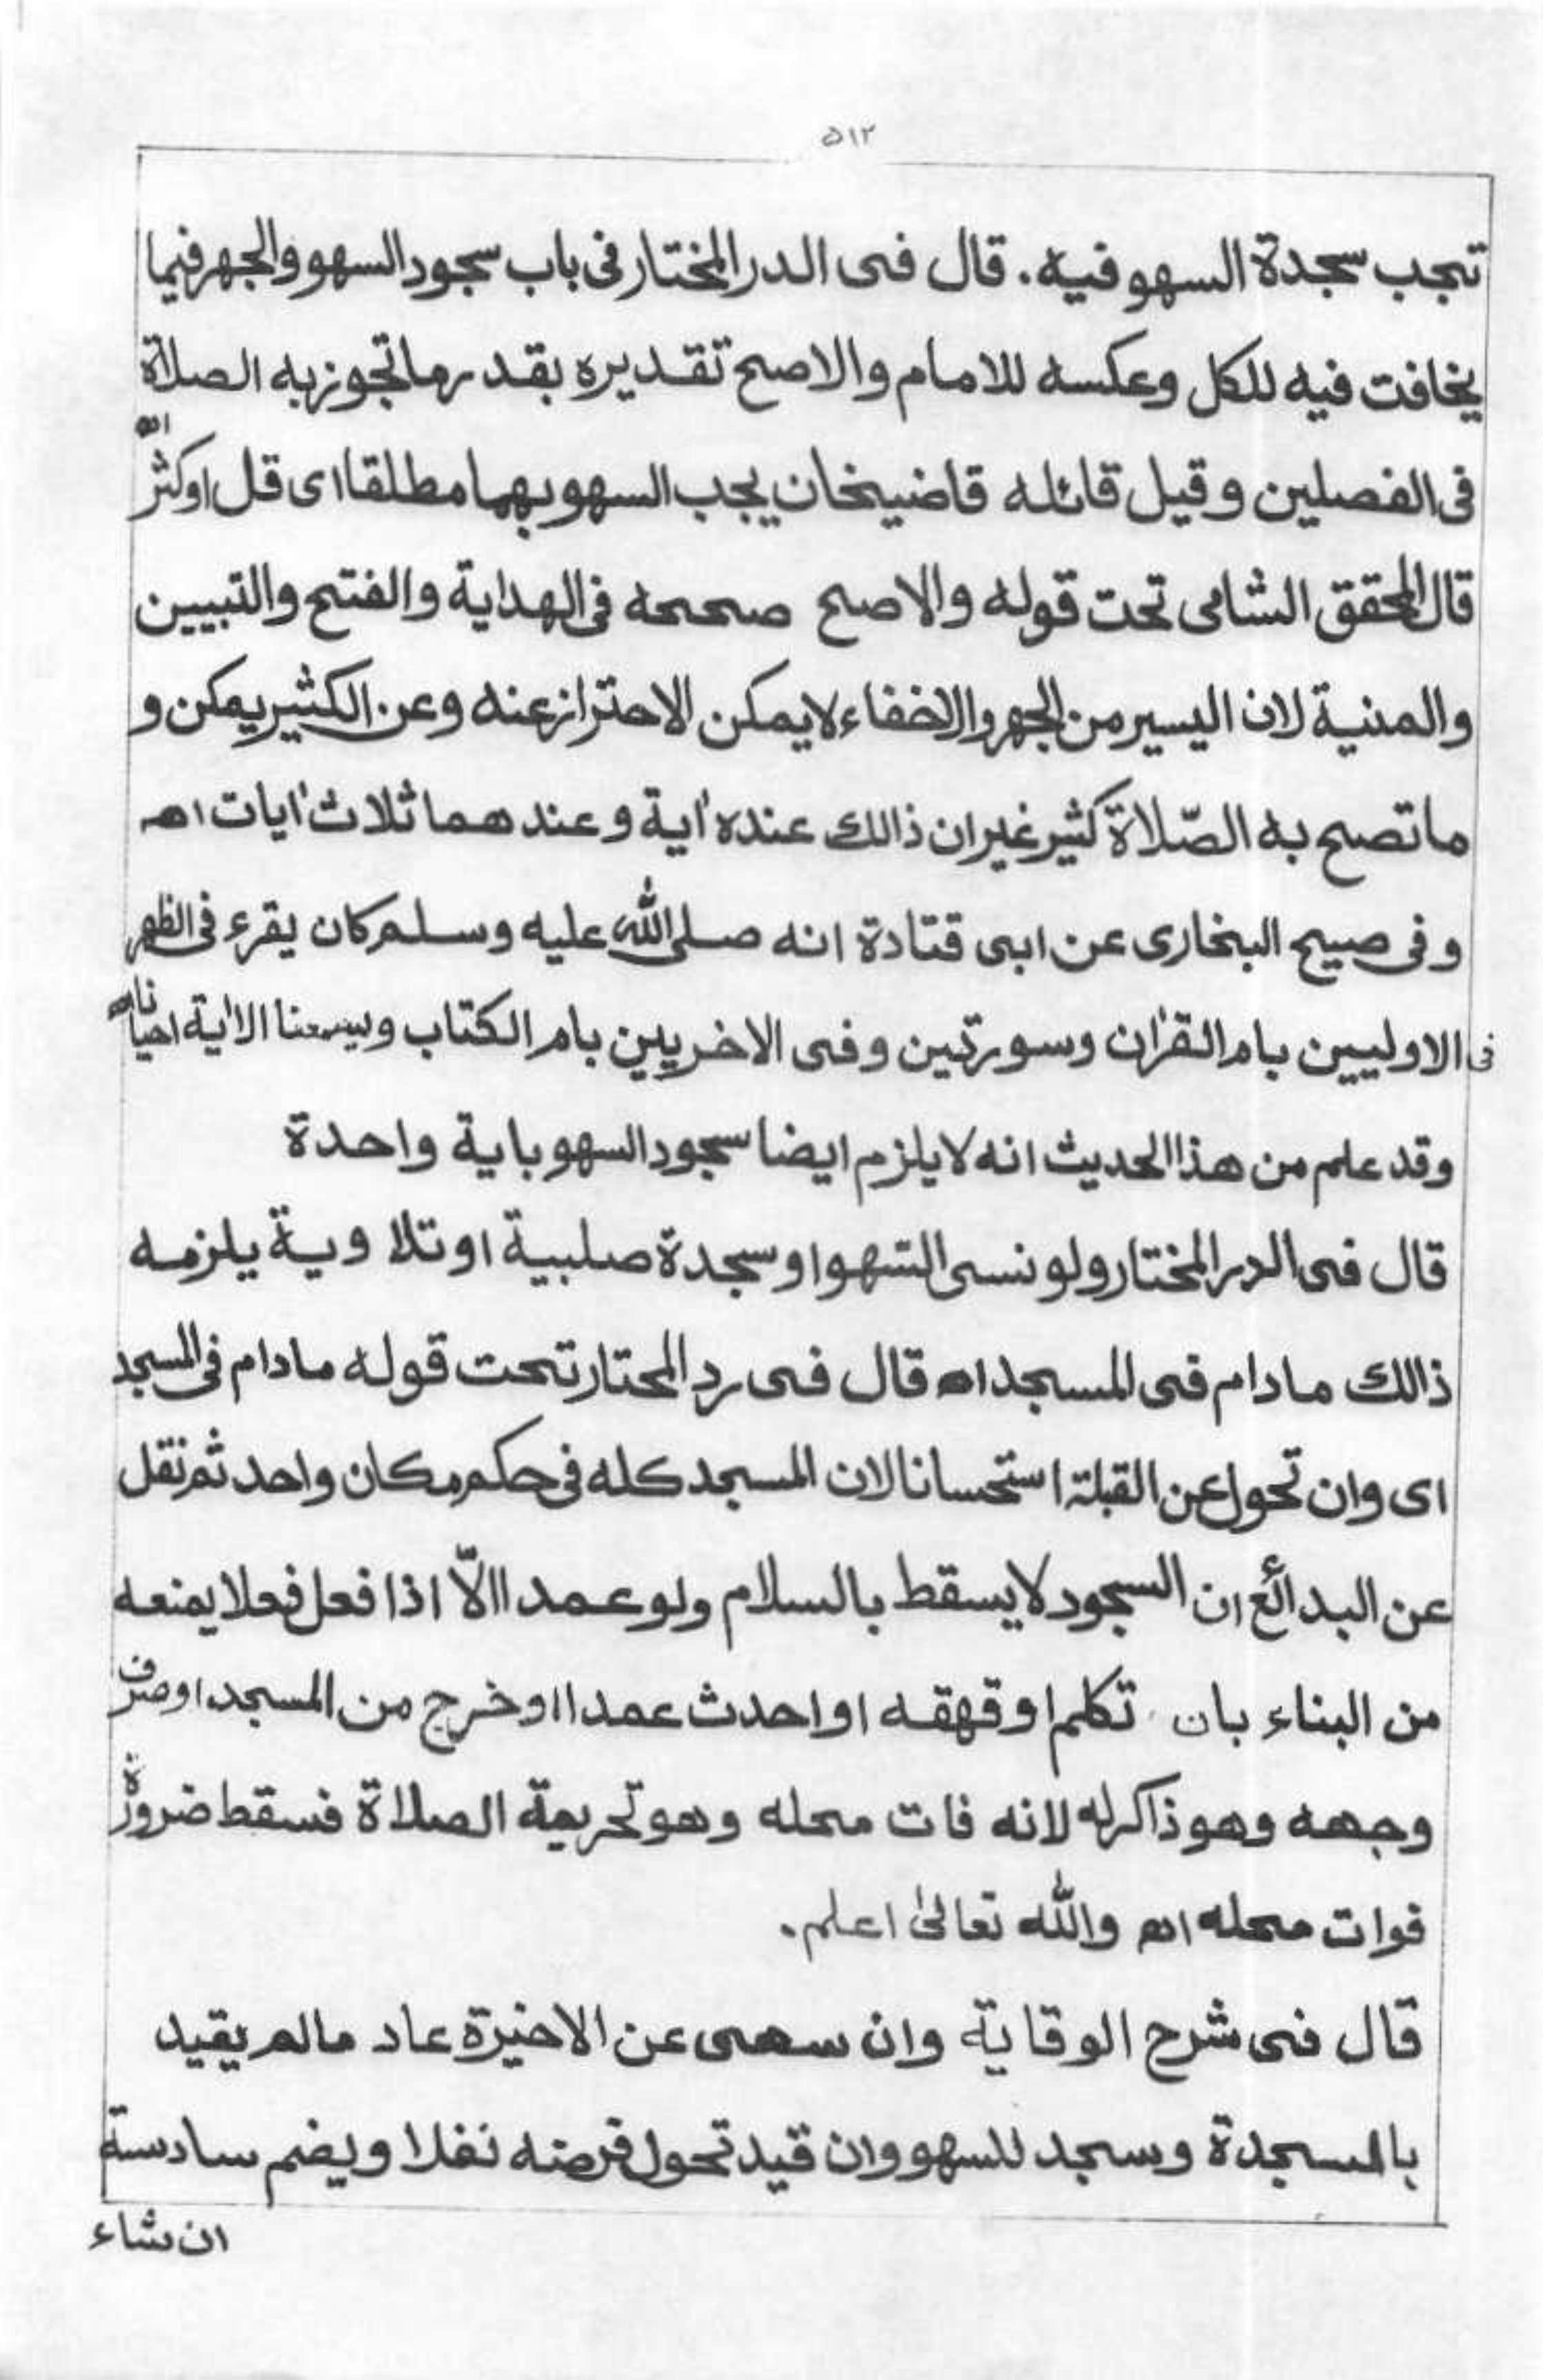 ٥١٢
تجب سجدة السهو فيه. قال فى الدر المختار فى باب سجود السهو والجهر فيما
يخافت فيه للكل وعكسه للامام والاصح تقديره بقدر ما تجوز به الصلاة
فى الفصلين وقيل قائله قاضيخان يجب السهو بهما مطلقا اى قل اوكثر اھ
قال المحقق الشامى تحت قوله والاصح صححه فى الهداية والفتح والتبيين
والمنية لان اليسير من الجهر والاخفاء لايمكن الاحتراز عنه وعن الكثير يمكن و
ما تصح به الصّلاة كثير غير ان ذالك عنده اٰية وعندهما ثلاث اٰيات اھ
وفى صيح البخارى عن ابى قتادة انه صلى الله عليه وسلم كان يقرء فى الظهر
فى الاوليين بام القرٰان وسورتين وفى الاخريين بام الكتاب ويسمعنا الاٰية احيانا اھ
وقد علم من هذا الحديث انه لايلزم ايضا سجود السهو باية واحدة
قال فى الدر المختار ولو نسى السّهو او سجدة صلبية او تلا وية يلزمه
ذالك مادام فى المسجد اھ قال فى رد المحتار تحت قوله مادام فى المسجد
اى وان تحول عن القبلة استحسانا لان المسجد كله فى حكم مكان واحد ثم نقل
عن البدائع ان السجود لايسقط بالسلام ولو عمدا الّا اذا فعل فعلا يمنعه
من البناء بان تكلم او قهقه او احدث عمدا او خرج من المسجد او صرف
وجهه وهو ذاكر له لانه فات محله وهو تحريمة الصلاة فسقط ضرورة
فوات محله اھ والله تعالىٰ اعلم.
قال فى شرح الوقاية وان سهى عن الاخيرة عاد مالم يقيد
بالسجدة وسجد للسهو وان قيد تحول فرضه نفلا ويضم سادسة
ان شاء